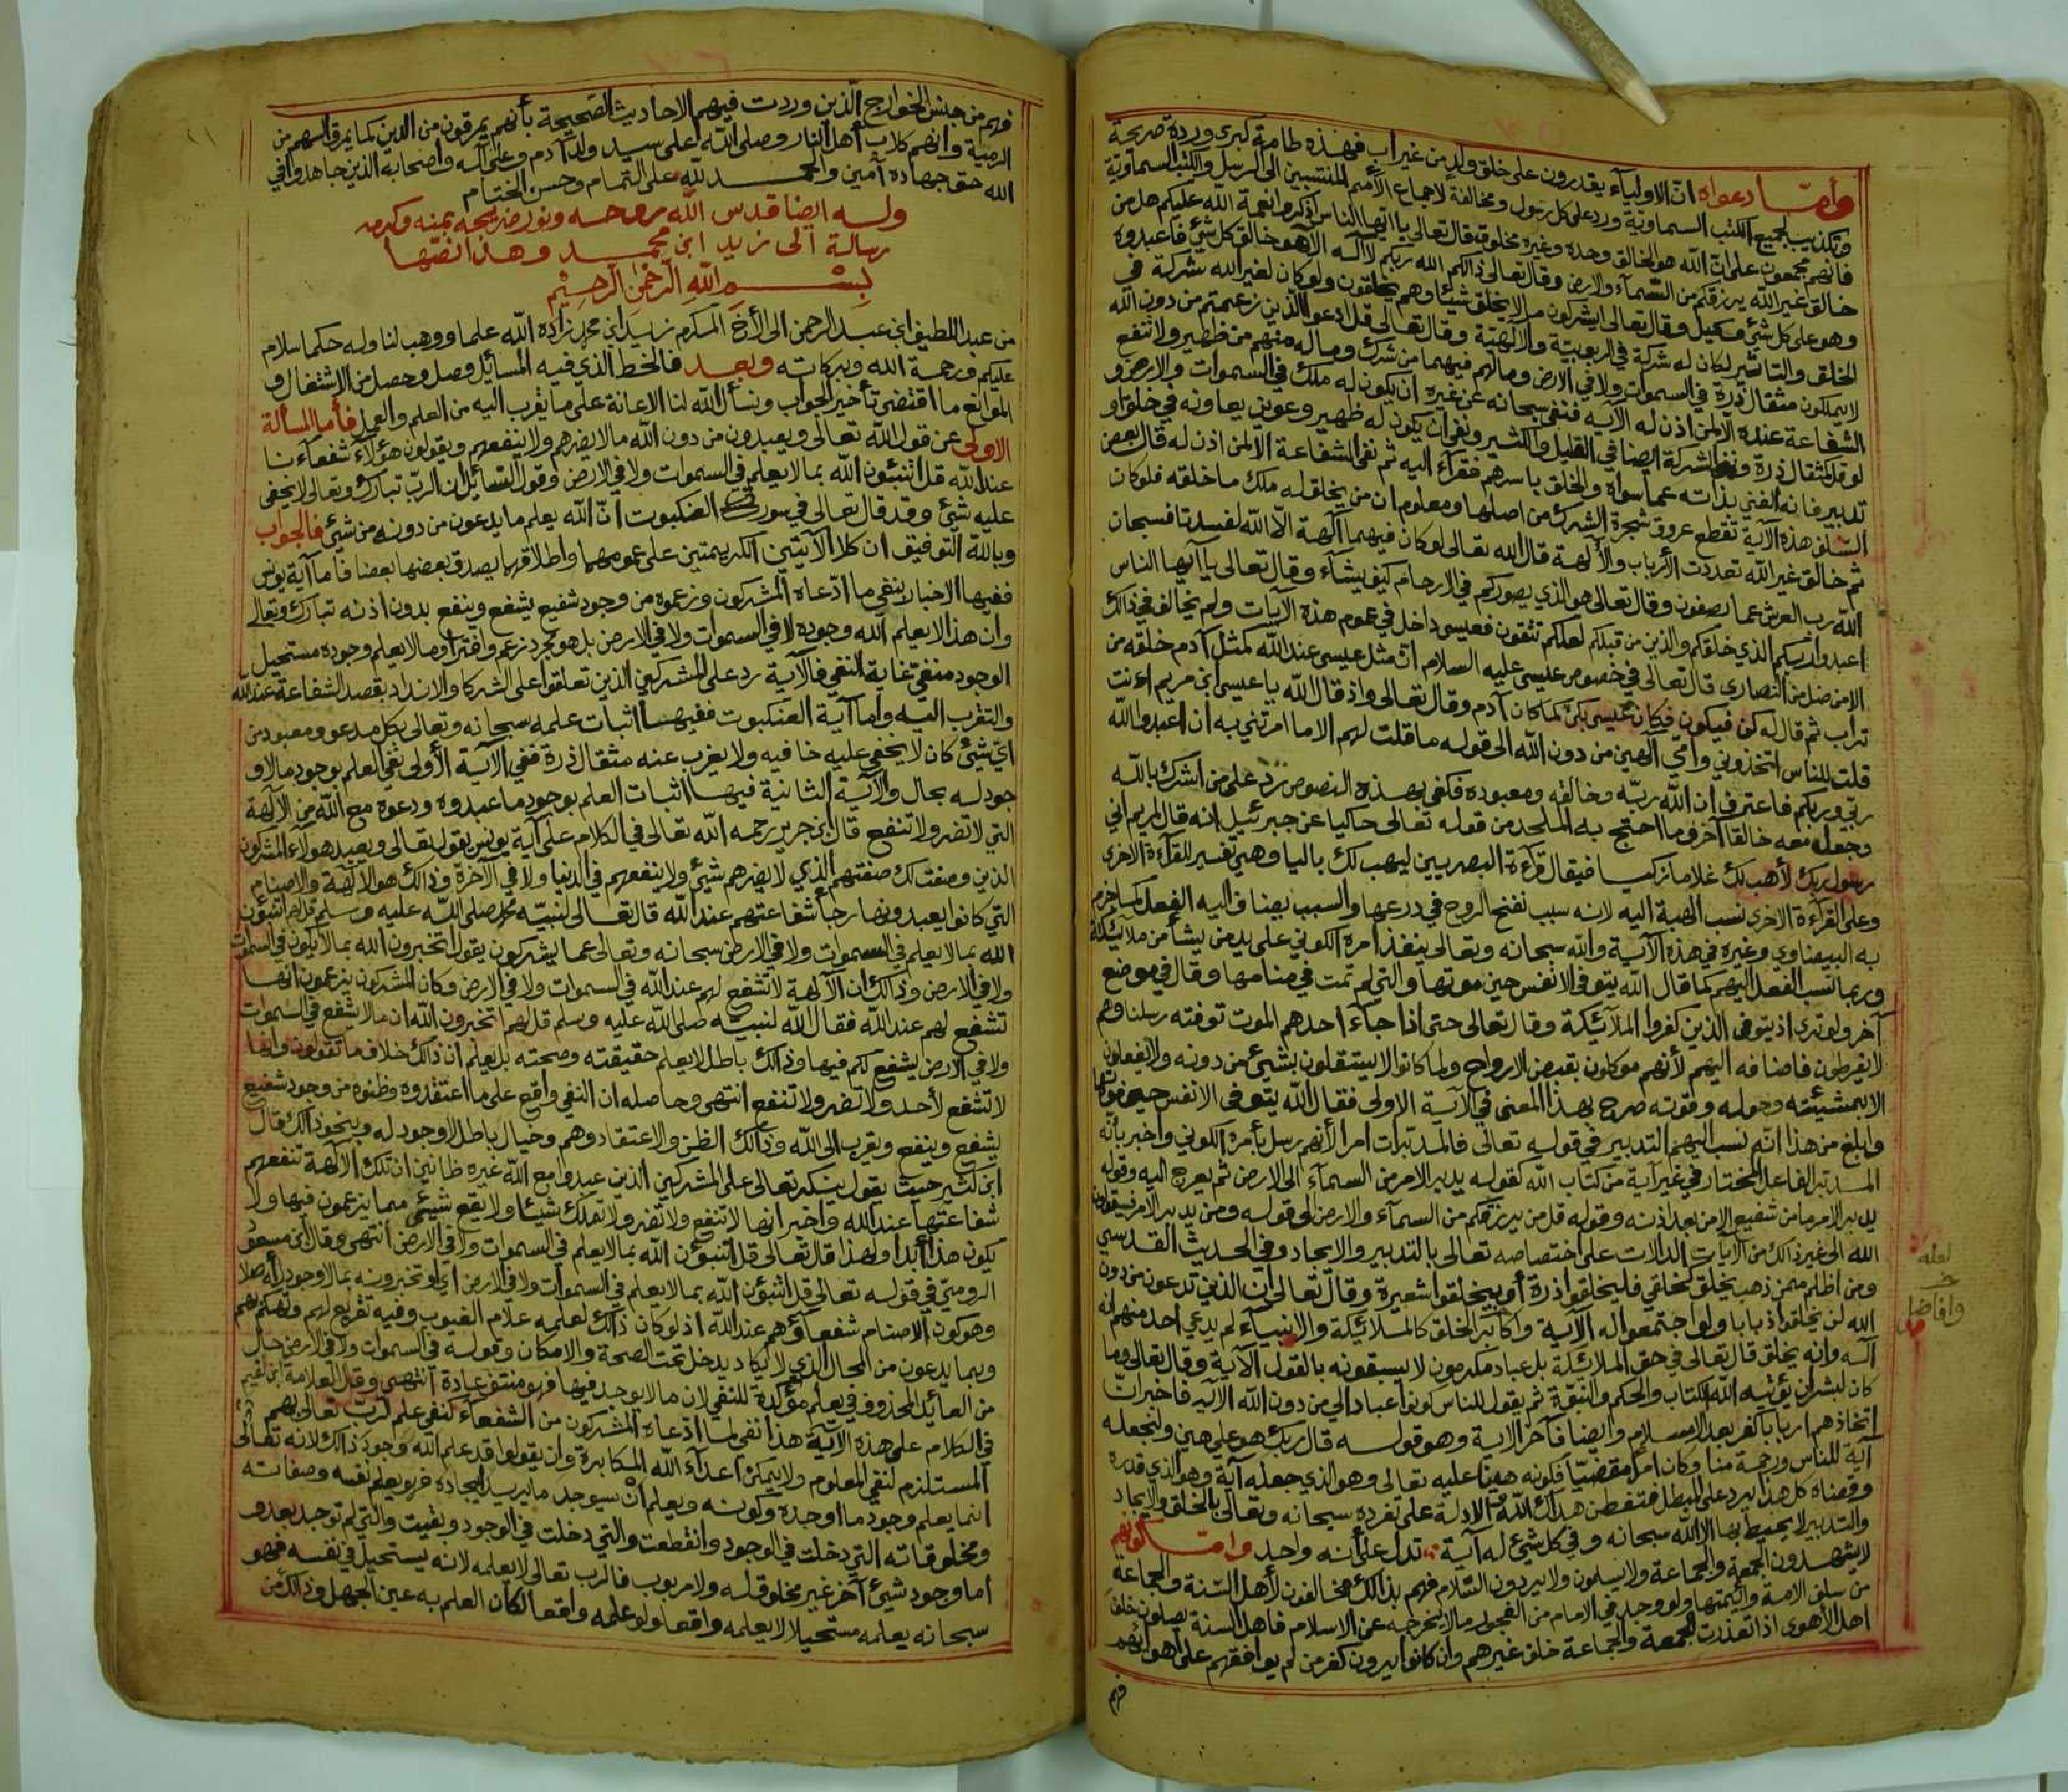 وأما دعواه ان الاولياء يقدرون على خلق ولد من غير أب فهذه طامة كبرى وردة صريحة
وتكذيب لجميع الكتب السماوية ورد على كل رسول ومخالفة لاجماع الأمم المنتسبين الى الرسل والكتب السماوية
فانهم مجمعون على ان الله هو الخالق وحده وغيره مخلوق قال تعالى يا ايها الناس اذكروا نعمة الله عليكم هل من
خالق غير الله يرزقكم من السماء والارض وقال تعالى ذالكم الله ربكم لا اله الا هو خالق كل شيء فاعبدوه
وهو على كل شيء وكيل وقال تعالى ايشركون ما لا يخلق شيئا وهم يخلقون ولو كان لغير الله شركة في
الخلق والتاثير لكان له شركة في الربوبية والالهية وقال تعالى قل ادعوا الذين زعمتم من دون الله
لا يملكون مثقال ذرة في السموات ولا في الارض وما لهم فيهما من شرك وما له منهم من ظهير ولا تنفع
الشفاعة عنده الا لمن اذن له الآية فنفى سبحانه عن غيره ان يكون له ملك في السموات والارض و
لو قل كمثقال ذرة ونفى الشركة ايضا في القليل والكثير ونفى ان يكون له ظهير وعوين يعاونه في خلق او
تدبير فانه الغني بذاته عما سواه والخلق باسرهم فقراء اليه ثم نفى الشفاعة الا لمن اذن له قال بعض
السلف هذه الآية تقطع عروق شجرة الشرك من اصلها ومعلوم ان من يخلق له ملك ما خلقه فلو كان
ثم خالق غير الله تعددت الأرباب والألهة قال الله تعالى لو كان فيهما آلهة الا الله لفسدتا فسبحان
الله رب العرش عما يصفون وقال تعالى هو الذي يصوركم في الارحام كيف يشاء وقال تعالى يا ايها الناس
اعبدوا ربكم الذي خلقكم والذين من قبلكم لعلكم تتقون فعيسى داخل في عموم هذه الآيات ولم يخالف في ذالك
الا من ضل من النصارى قال تعالى في خصوص عيسى عليه السلام ان مثل عيسى عند الله كمثل آدم خلقه من
تراب ثم قال له كن فيكون فكان عيسى بكن كما كان آدم وقال تعالى واذ قال الله يا عيسى ابن مريم اءنت
قلت للناس اتخذوني وامي الهين من دون الله الى قوله ما قلت لهم الا ما امرتني به أن اعبدوا الله
ربي وربكم فاعترف ان الله ربه وخالقه ومعبوده فكفى بهذه النصوص رد على من أشرك بالله
وجعل معه خالقا آخر وما احتج به الملحد من قوله تعالى حاكيا عن جبرئيل انه قال لمريم اني
رسول ربك لأهب لك غلاما زكيا فيقال قرآءة البصريين ليهب لك باليا وهي تفسير للقرآءة الاخرى
وعلى القرآءة الاخرى نسب الهبة اليه لانه سبب نفخ الروح في درعها والسبب يضاف اليه الفعل كما جزم
به البيضاوي وغيره في هذه الآية والله سبحانه وتعالى ينفذ امره الكوني على يد من يشأ من ملائكة
وربما نسب الفعل اليهم كما قال الله يتوفى الانفس حين موتها والتي لم تمت في منامها وقال في موضع
آخر ولو ترى اذ يتوفى الذين كفروا الملائكة وقال تعالى حتى اذا جآء احدهم الموت توفته رسلنا وهم
لا يفرطون فاضافه اليهم لأنهم موكلون بقبض الارواح ولما كانوا لا يستقلون بشيء من دونه ولا يفعلون
الا بمشيئته وحوله وقوته صرح بهذا المعنى في الآية الاولى فقال الله يتوفى الانفس حين موتها
وابلغ من هذا انه نسب اليهم التدبير في قوله تعالى فالمدبرات امرا لأنهم رسل بأمره الكوني واخبر بأنه
المدبر الفاعل المختار في غير آية من كتاب الله كقوله يدبر الامر من السمآء الى الارض ثم يعرج اليه وقوله
يدبر الامر ما من شفيع الا من بعد اذنه وقوله قل من يرزقكم من السمآء والارض الى قوله ومن يدبر الامر فسيقولون
الله الى غير ذالك من الآيات الدالات على اختصاصه تعالى بالتدبير والايجاد وفي الحديث القدسي
ومن اظلم ممن ذهب يخلق كخلقي فليخلقوا ذرة أو ليخلقوا شعيرة وقال تعالى ان الذين تدعون من دون
الله لن يخلقوا ذبابا ولو اجتمعوا له الآية واكابر الخلق كالملائكة والانبياء لم يدعي احد منهم انه
اله وانه يخلق قال تعالى في حق الملائكة بل عباد مكرمون لا يسبقونه بالقول الآية وقال تعالى وما
كان لبشر ان يؤتيه الله الكتاب والحكم والنبوة ثم يقول للناس كونوا عبادا لي من دون الله الآيه فاخبر ان
اتخاذهم اربابا كفر بعد الاسلام وايضا فآخر الاية وهو قوله قال ربك هو علي هين ولنجعله
آية للناس ورحمة منا وكان امرا مقضيا فكونه هينا عليه تعالى وهو الذي جعله آية وهو الذي قدره
وقضاه كل هذا يرد على المبطل فتفطن هداك الله فالادلة على تفرده سبحانه وتعالى بالخلق والايجاد
والتدبير لا يحيط بها الا الله سبحانه وفي كل شيء له آية تدل على أنه واحد وامـا كونهم
لا يشهدون الجمعة والجماعة ولا يسلون ولا يردون السلام فهم بذالك مخالفون لأهل السنة والجماعة
من سلف الامة وائمتها ولو وجد في الامام من الفجور ما لا يخرجه عن الاسلام فاهل السنة يصلون خلف
اهل الأهوى اذا تعذرت الجمعة والجماعة خلف غيرهم وان كانوا يرون كفر من لم يوافقهم على اهوائهم
فهم
لعله
وافاضل
فهم من جنس الخوارج الذين وردت فيهم الاحاديث الصحيحة بأنهم يمرقون من الدين كما يمرق السهم من
الرمية وانهم كلاب أهل النار وصلى الله على سيد ولد آدم وعلى آله واصحابه الذين جاهدوا في
الله حق جهاده أمين والحمد لله على التمام وحسن الختام
وله ايضا قدس الله روحه ونور ضريحه بمنه وكرمه
رسالة الى زيد ابن محمد وهذا نصها
بسم الله الرحمن الرحيم
من عبد اللطيف ابن عبد الرحمن الى الأخ المكرم زيد ابن محمد زاده الله علما ووهب لنا وله حكما سلام
عليكم ورحمة الله وبركاته وبعد فالخط الذي فيه المسائل وصل وحصل من الاشتغال و
الموانع ما اقتضى تأخير الجواب ونسأل الله لنا الاعانة على ما يقرب اليه من العلم والعمل فأما المسألة
الاولى عن قول الله تعالى ويعبدون من دون الله ما لا يضرهم ولا ينفعهم ويقولون هؤلاء شفعآءنا
عند الله قل اتنبئون الله بما لا يعلم في السموات ولا في الارض وقول السائل ان الرب تبارك وتعالى لا يخفى
عليه شيئ وقد قال تعالى في سورة العنكبوت ان الله يعلم ما يدعون من دونه من شيئ فالجواب
وبالله التوفيق ان كلا الآيتين الكريمتين على عمومهما واطلاقهما يصدق بعضها بعضا فاما آية يونس
ففيها الاخبار بنفي ما ادعاه المشركون وزعموه من وجود شفيع يشفع وينفع بدون اذنه تبارك وتعالى
وان هذا لا يعلم الله وجوده لا في السموات ولا في الارض بل هو مجرد زعم وافترا وما لا يعلم وجوده مستحيل
الوجود منفي غاية النفي فالآية رد على المشركين الذين تعلقوا على الشركا والانداد بقصد الشفاعة عند الله
والتقرب اليه وأما آية العنكبوت ففيها اثبات علمه سبحانه وتعالى بكل مدعو ومعبود من
اي شيئ كان لا يخفى عليه خافيه ولا يعزب عنه مثقال ذرة ففي الآية الأولى نفي العلم بوجود ما لا و
جود له بحال والآية الثانية فيها اثبات العلم بوجود ما عبدوه ودعوه مع الله من الآلهة
التي لا تضر ولا تنفع قال ابن جرير رحمه الله تعالى في الكلام على آية يونس يقول تعالى ويعبد هولآء المشركون
الذين وصفت لك صفتهم الذي لا يضرهم شيئ ولا ينفعهم في الدنيا ولا في الآخرة وذالك هو الآلهة والاصنام
التي كانوا يعبدونها رجا شفاعتهم عند الله قال تعالى لنبيه محمد صلى الله عليه وسلم قل لهم اتنبئون
الله بما لا يعلم في السموات ولا في الارض سبحانه وتعالى عما يشركون يقول اتخبرون الله بما لا يكون في السموات
ولا في الارض وذالك ان الآلهة لا تشفع لهم عند الله في السموات ولا في الارض وكان المشركون يزعمون انها
تشفع لهم عند الله فقال الله لنبيه صلى الله عليه وسلم قل لهم اتخبرون الله ان ما لا يشفع في السموات
ولا في الارض يشفع لكم فيها وذالك باطل لا يعلم حقيقته وصحته بل يعلم ان ذالك خلاف ما تقولون وانها
لا تشفع لأحد ولا تضر ولا تنفع انتهى وحاصله ان النفي واقع على ما اعتقدوه وظنوه من وجود شفيع
يشفع وينفع ويقرب الى الله وذالك الظن والاعتقاد وهم وخيال باطل لا وجود له وبنحو ذالك قال
ابن كثير حيث يقول ينكر تعالى على المشركين الذين عبدوا مع الله غيره ظانين ان تلك الآلهة تنفعهم
شفاعتها عند الله واخبر انها لا تنفع ولا تضر ولا تملك شيئا ولا يقع شيئ مما يزعمون فيها ولا
يكون هذا ابدا ولهذا قال تعالى قل اتنبئون الله بما لا يعلم في السموات ولا في الارض انتهى وقال ابن مسعود
الرومي في قوله تعالى قل اتنبئون الله بما لا يعلم في السموات ولا في الارض اي اتخبرونه بما لا وجود له اصلا
وهو كون الاصنام شفعاؤهم عند الله اذ لو كان ذالك لعلمه علام الغيوب وفيه تقريع لهم وتهكم بهم
وبما يدعون من المحال الذي لا يكاد يدخل تحت الصحة والامكان وقوله في السموات ولا في الارض حال
من العائد المحذوف في يعلم مؤكدة للنفي لان ما لا يوجد فيها فهو منتف عادة انتهى وقال العلامة ابن القيم
في الكلام على هذه الآية هذا نفي لما ادعاه المشركون من الشفعاء كنفي علم الرب تعالى بهم
المستلزم لنفي المعلوم ولا يمكن اعداء الله المكابرة وان يقولوا قد علم الله وجود ذالك لانه تعالى
انما يعلم وجود ما اوجده وكونه ويعلم أن سيوجد ما يريد ايجاده فهو يعلم نفسه وصفاته
ومخلوقاته التي دخلت في الوجود وانقطعت والتي دخلت في الوجود وبقيت والتي لم توجد بعد و
أما وجود شيئ آخر غير مخلوق له ولا مربوب فالرب تعالى لا يعلمه لانه يستحيل في نفسه فهو
سبحانه يعلمه مستحيلا لا يعلمه واقعا ولو علمه واقعا لكان العلم به عين الجهل وذالك من